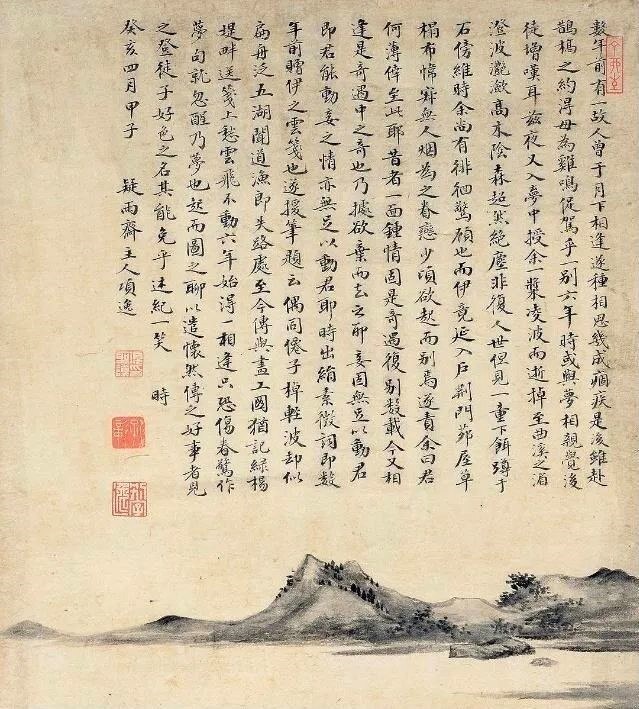 數年前有一故人曾于月下相逢遂種相思幾成痼疾是後雖赴
鵲橋之約得毋為雞鳴促駕乎一別六年時或與夢相親覺後
徒增嘆耳茲夜又入夢中授余一槳凌波而逝掉至曲溪之湄
澄波灔瀲高木陰森超然絕塵非復人世但見一重下餌磯于
石傍維時余尚有徘徊驚顧也而伊竟延入戶荆門茆屋草
榻布幃寂無人烟為之眷戀少頃欲起而別焉遂責余曰君
何薄倖至此耶昔者一面鍾情固是奇遇復別數載今又相
逢是奇遇中之奇也乃據欲棄而去之耶妾固無足以動君
即君能動妾之情亦無足以動君耶時出絹素徵詞即數
年前贈伊之雲箋也遂援筆題云偶同僊子棹輕波却似
扁舟泛五湖聞道漁郎失路處至今傳與畫工圖猶記綠楊
堤畔送箋上愁雲飛不動六年始得一相逢只恐傷春驚作
夢句就忽醒乃夢也起而圖之聊以遣懷然傳之好事者見
之登徒子好色之名其能免乎述紀一笑 時
癸亥四月甲子 疑雨齋主人項逸